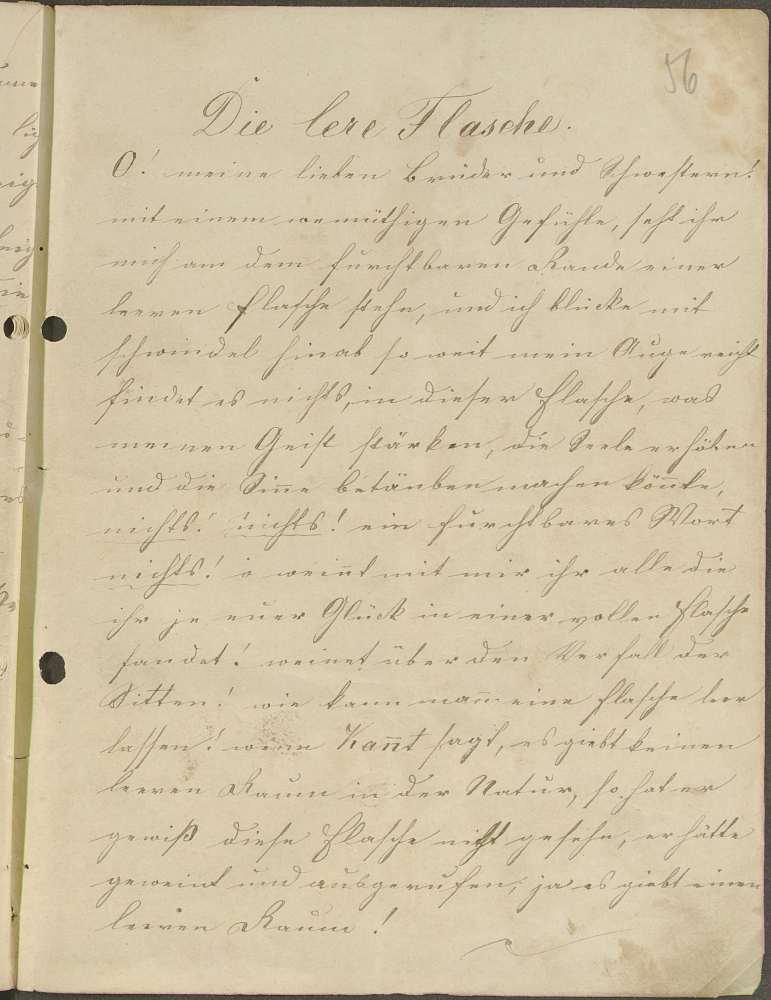 56
Die lere Flasche.
O! meine lieben Brüder und Schwestern!
mit einem wemüthigen Gefühle, seht ihr
mich am dem furchtbaren Rande einer
leeren Flasche stehn, und ich blücke mit
schwindel hinab so weit mein Auge reicht
findet es nichts, in dieser Flasche, was
meinen Geist stärken, die Seele erhöben
und die Siñe betäuben machen köñte,
nichts! nichts! ein furchtbares Wort
nichts! o weint mit mir ihr alle die
ihr je euer Glück in einer vollen Flasche
fandet! weinet über den Verfall der
Sitten! wie kann mann eine Flasche leer
lassen! wenn Kañt sagt, es giebt keinen
leeren Raum in der Natur, so hat er
gewiß diese Flasche nicht gesehn, er hätte
geweint und ausgerufen, ja es giebt einen
leeren Raum!